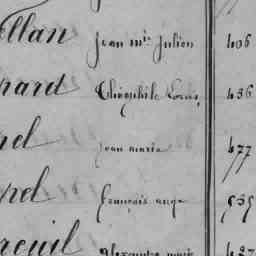 llan Jean mie Julien 406
hard Théophile Louis, 436
rel Jean marie 477
rel François ange 535
reuil Alexandre marie 487